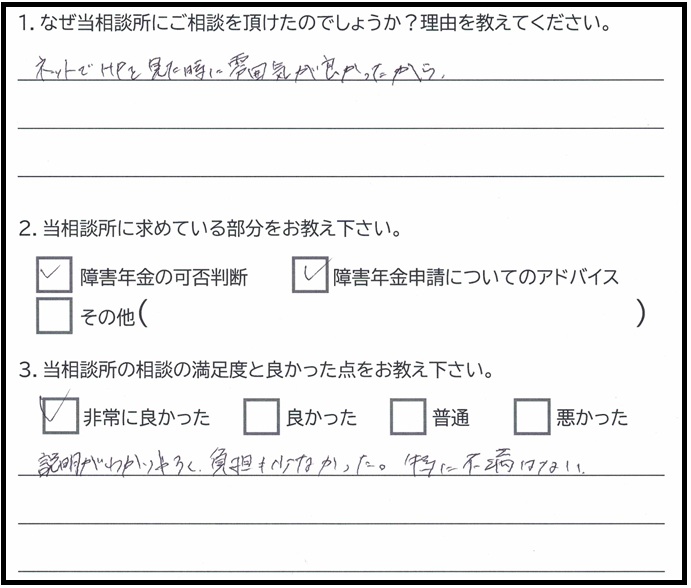 1. なぜ当相談所にご相談を頂けたのでしょうか？理由を教えてください。
ネットでHPを見た時に雰囲気が良かったから。
2. 当相談所に求めている部分をお教え下さい。
✓ 障害年金の可否判断 ✓ 障害年金申請についてのアドバイス
その他( )
3. 当相談所の相談の満足度と良かった点をお教え下さい。
✓ 非常に良かった 良かった 普通 悪かった
説明がわかりやすく、負担も少なかった。特に不満はない。